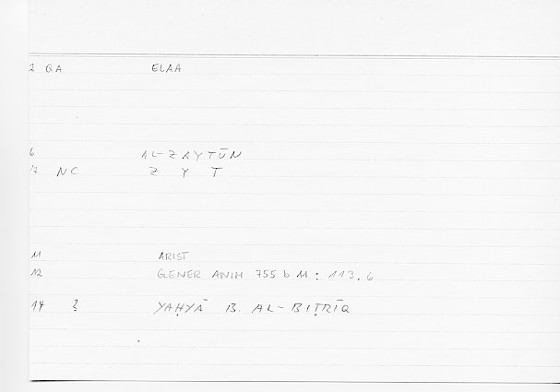 2 GA ELAA
6 AL-ZAYTŪN
7 NC Z Y T
11 ARIST
12 GENER ANIM 755 b M : 113.6
14 YAḤYĀ B. AL-BIṬRĪQ